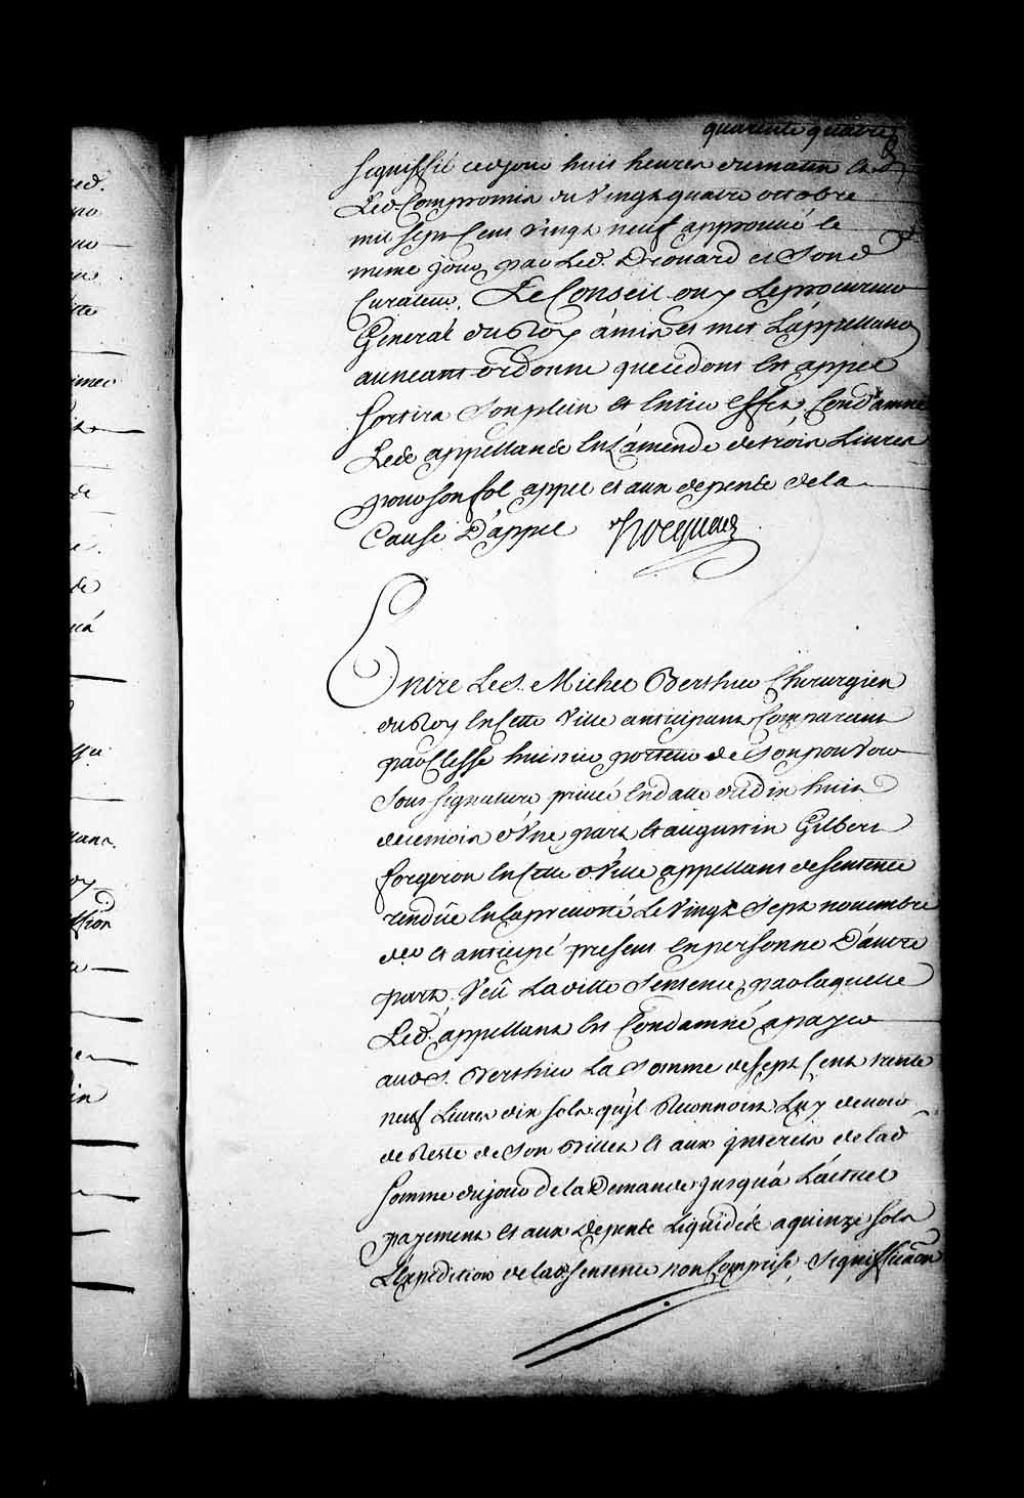 quarente quatre
signiffié ced. jour huit heures du matin Et
Led. Compromis du Vingt quatre octobre
mil sept Cent Vingt neuf approuvé le
meme jour par Led. Drouard et Sond.
Curateur. Le Conseil ouy Le procureur
General du Roy à mis et met L'appellation
au neant ordonne que ce dont Est appel
Sortira Son plein Et Entier effet, Condamne
Led. appellant En L'amende de trois Livres
pour Son fol appel et aux depens de la
Cause D'appel Hocquart
Entre Le S. Michel Berthier Chirurgien
du Roy En Cette Ville anticipant Comparant
par Clesse huissier porteur de Son pouvoir
Sous Signature privée En datte du dix huit
de ce mois d'Une part Et augustin Gilbert
forgeron En Cette d. Ville appellant de Sentence
rendüe En La prevosté Le Vingt Sept novembre
der. Et anticipé present En personne D'autre
part, Veü Laditte Sentence, par laquelle
Led. appellant Est Condamné a payer
aud. S. Berthier La Somme de Sept Cent trente
neuf Livres dix Sols qu'il Reconnoist Luy devoir
de Reste de Son Billet Et aux interests de lad.
Somme du jour de la Demande jusqu'à L'actuel
payement Et aux Depens Liquidés a quinze Sols
L'Expedition de lad. Sentence non Comprise, Signiffication